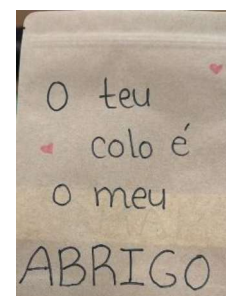 O teu
colo é
o meu
ABRIGO